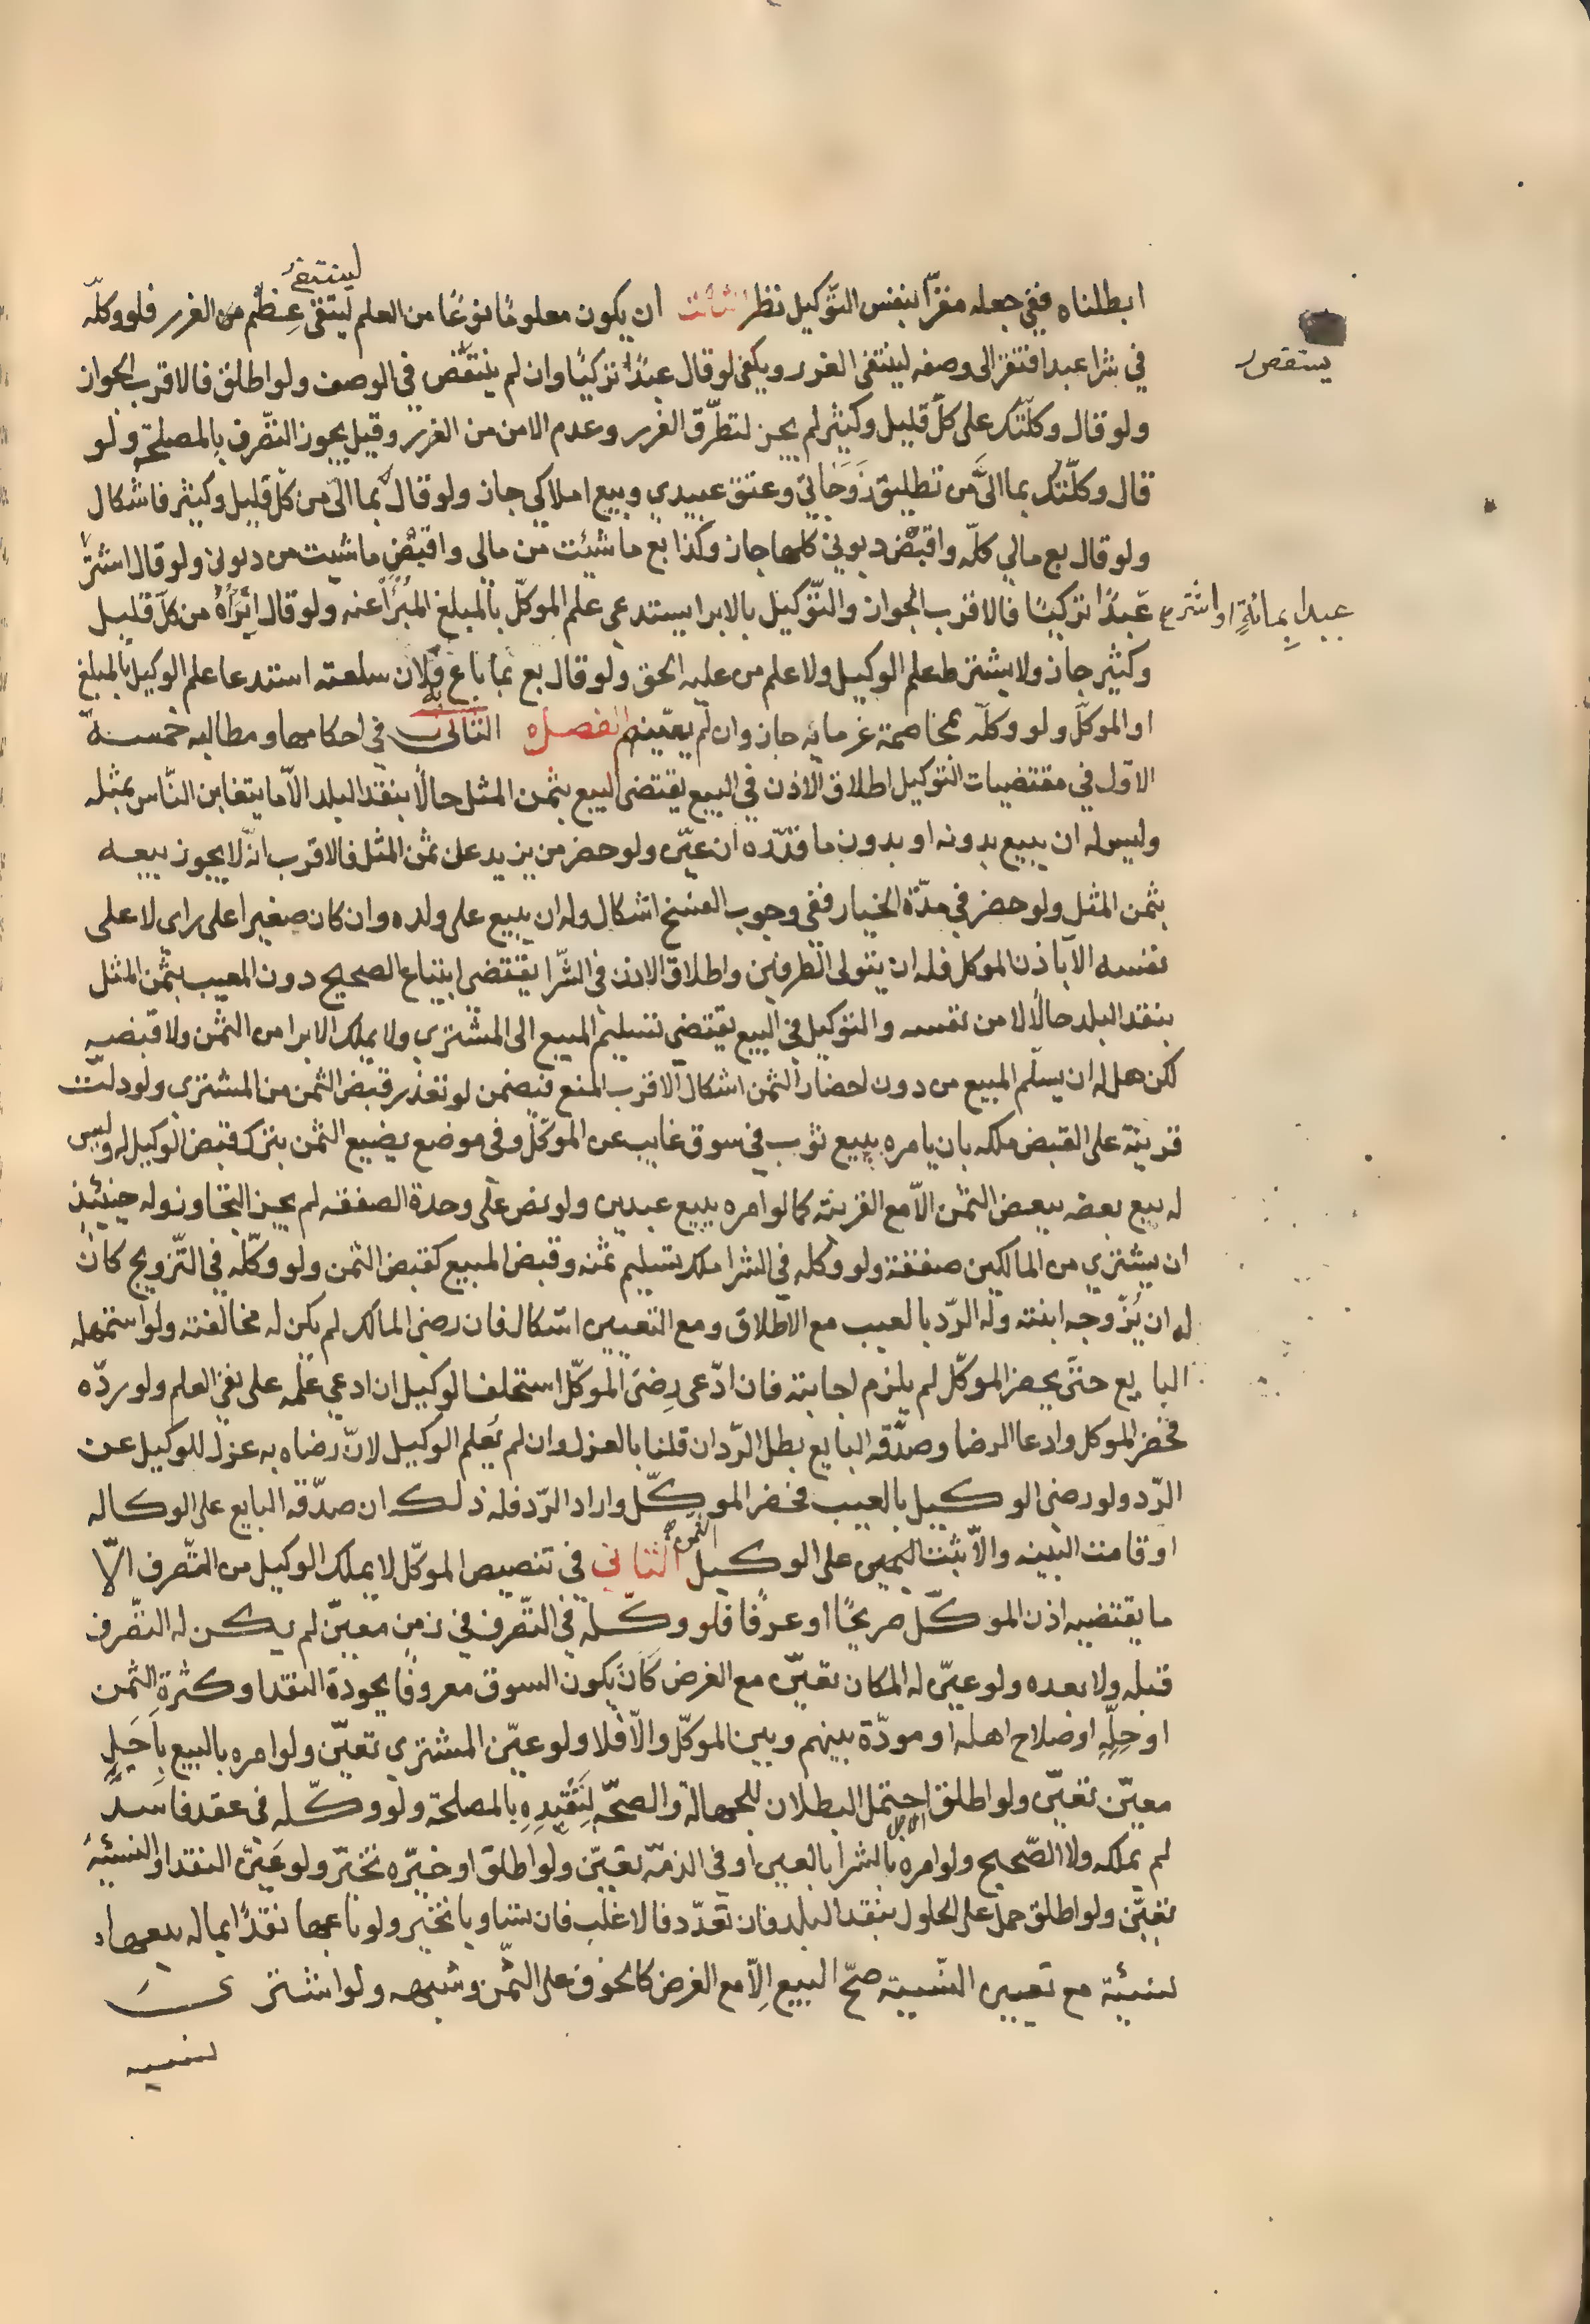 لينتفي
ابطلناه ففي جعله مقرّا بنفس التّوكيل نظر الثالث ان يكون معلومًا نوعًا من العلم لينتفي عِظَم من الغرر فلو وكلّه
يستقص
في شرا عبد افتقر الى وصفه لينتفي الغرر ويكفي لو قال عبدًا تركيًا وان لم يستقص في الوصف ولو اطلق فالاقرب الجواز
ولو قال وكلّتك على كلّ قليل وكثير لم يجز لتطرّق الغرر وعدم الامن من الغرر وقيل يجوز التّصرف بالمصلحة ولو
قال وكلّتك بما اليَّ من تطليق زَوجَاتي وعتق عبيدي وبيع املاكي جاز ولو قال بما اليّ من كل قليل وكثير فاشكال
ولو قال بع مالي كلّه واقبض ديوني كلها جاز وكذا بع ما شئت من مالي واقبض ما شيت من ديوني ولو قال اشتر
عبدا بِمائةٍ او اشتر
عَبدًا تركيًا فالاقرب الجواز والتّوكيل بالابرا يستدعي علم الموكّل بالمبلغ المبرَأ عنه ولو قال ابرَأهُ من كلّ قليل
وكثير جاز ولا يشترط علم الوكيل ولا علم من عليه الحق ولو قال بع بما باع فلان سلعته استدعا علم الوكيل بالمبلغ
او الموكلّ ولو وكلّه بمخاصمة غرمايه جاز وان لم يعيّنهم الفصل الثاني في احكامها ومطالبه خمسة
الاوّل في مقتضيات التوكيل اطلاق الاذن في البيع يقتضي البيع بثمن المثل حالًا بنقد البلد الاّ ما يتغابن النّاس بمثله
وليس له ان يبيع بدونه او بدون ما قدّره ان عيّن ولو حضر من يزيد على ثمن المثل فالاقرب انّه لا يجوز بيعه
بثمن المثل ولو حضر في مدّة الخيار ففي وجوب الفسخ اشكال وله ان يبيع على ولده وان كان صغيرا على راى لا على
نفسه الاّ باذن الموكل فله ان يتولى الطرفين واطلاق الاذن في الشّرا يقتضي ابتياع الصحيح دون المعيب بثمن المثل
بنقد البلد حالًا لا من نفسه والتوكيل في البيع يقتضي تسليم المبيع الى المشتري ولا يملك الابرا من الثمن ولا قبضه
لكن هل له ان يسلّم المبيع من دون احضار الثمن اشكال الاقرب المنع فيضمن لو تعذر قبض الثمن من المشترى ولو دلت
قرينة على القبض ملكه بان يامره ببيع ثوب في سوق غايب عن الموكّل وفي موضع يضيع الثمن بترك قبض الوكيل له وليس
له بيع بعضه ببعض الثمن الاّ مع القرينة كما لو امره ببيع عبدين ولو نص على وحدة الصفقه لم يجز التجاوز وله حينئذٍ
ان يشتري من المالكين صفقة ولو وكله في الشرا ملك تسليم ثمنه وقبض المبيع كقبض الثمن ولو وكّله في التّزويج كان
له ان يُزوّجه ابنته وله الرّد بالعيب مع الاطلاق ومع التعيين اشكال فان رضى المالك لم يكن له مخالفته ولو استمهله
البايع حتّى يحضر الموكّل لم يلزم اجابته فان ادّعى رِضَى الموكّل استحلف الوكيل ان ادعى علمه على نفي العلم ولو ردّه
فحضر الموكل وادعا الرضا وصدّقه البايع بطل الرّد ان قلنا بالعزل وان لم يُعلم الوكيل لانّ رضاه به عزل للوكيل عن
الرّد ولو رضى الوكيل بالعيب فحضر الموكّل واراد الرّد فله ذلك ان صدّقه البايع على الوكاله
او قامت البينه والاّ يثبت اليمين على الوكيل الثاني في تنصيص الموكّل لا يملك الوكيل من التّصرف الاّ
ما يقتضيه اذن الموكّل صريحًا او عرفًا فلو وكّله في التّصرف في زمن معيّن لم يكن له التصّرف
قبله ولا بعده ولو عيّن له المكان تعيّن مع الغرض كَانَ يكون السوق معروفًا بجودة النقد او كثرة الثمن
او حِلّهِ او صلاح اهله او مودّة بينهم وبين الموكّل والاّ فلا ولو عيّن المشتري تعيّن ولو امره بالبيع بِاَجَلٍ
معيّن تعيّن ولو اطلق احتمل البطلان للجهالة والصحّة لِتَقَيّدِهِ بالمصلحة ولو وكّله في عقد فاسد
لم يملكه ولا الصّحيح ولو امره بالشرا بالعين او في الذمّة تعيّن ولو اطلق او خيّره تخيّر ولو عَيّن النقد او النسئيةَ
تعيّن ولو اطلق حمل على الحلول بنقد البلد فان تعدّد فالاغلب فان تساويا تخيّر ولو باعها نقدًا بما له بيعها
نسئية مع تعيين النّسيه صحّ البيع اِلاّ مع الغرض كالخوف على الثّمن وشبهه ولو اشترى
نسيه